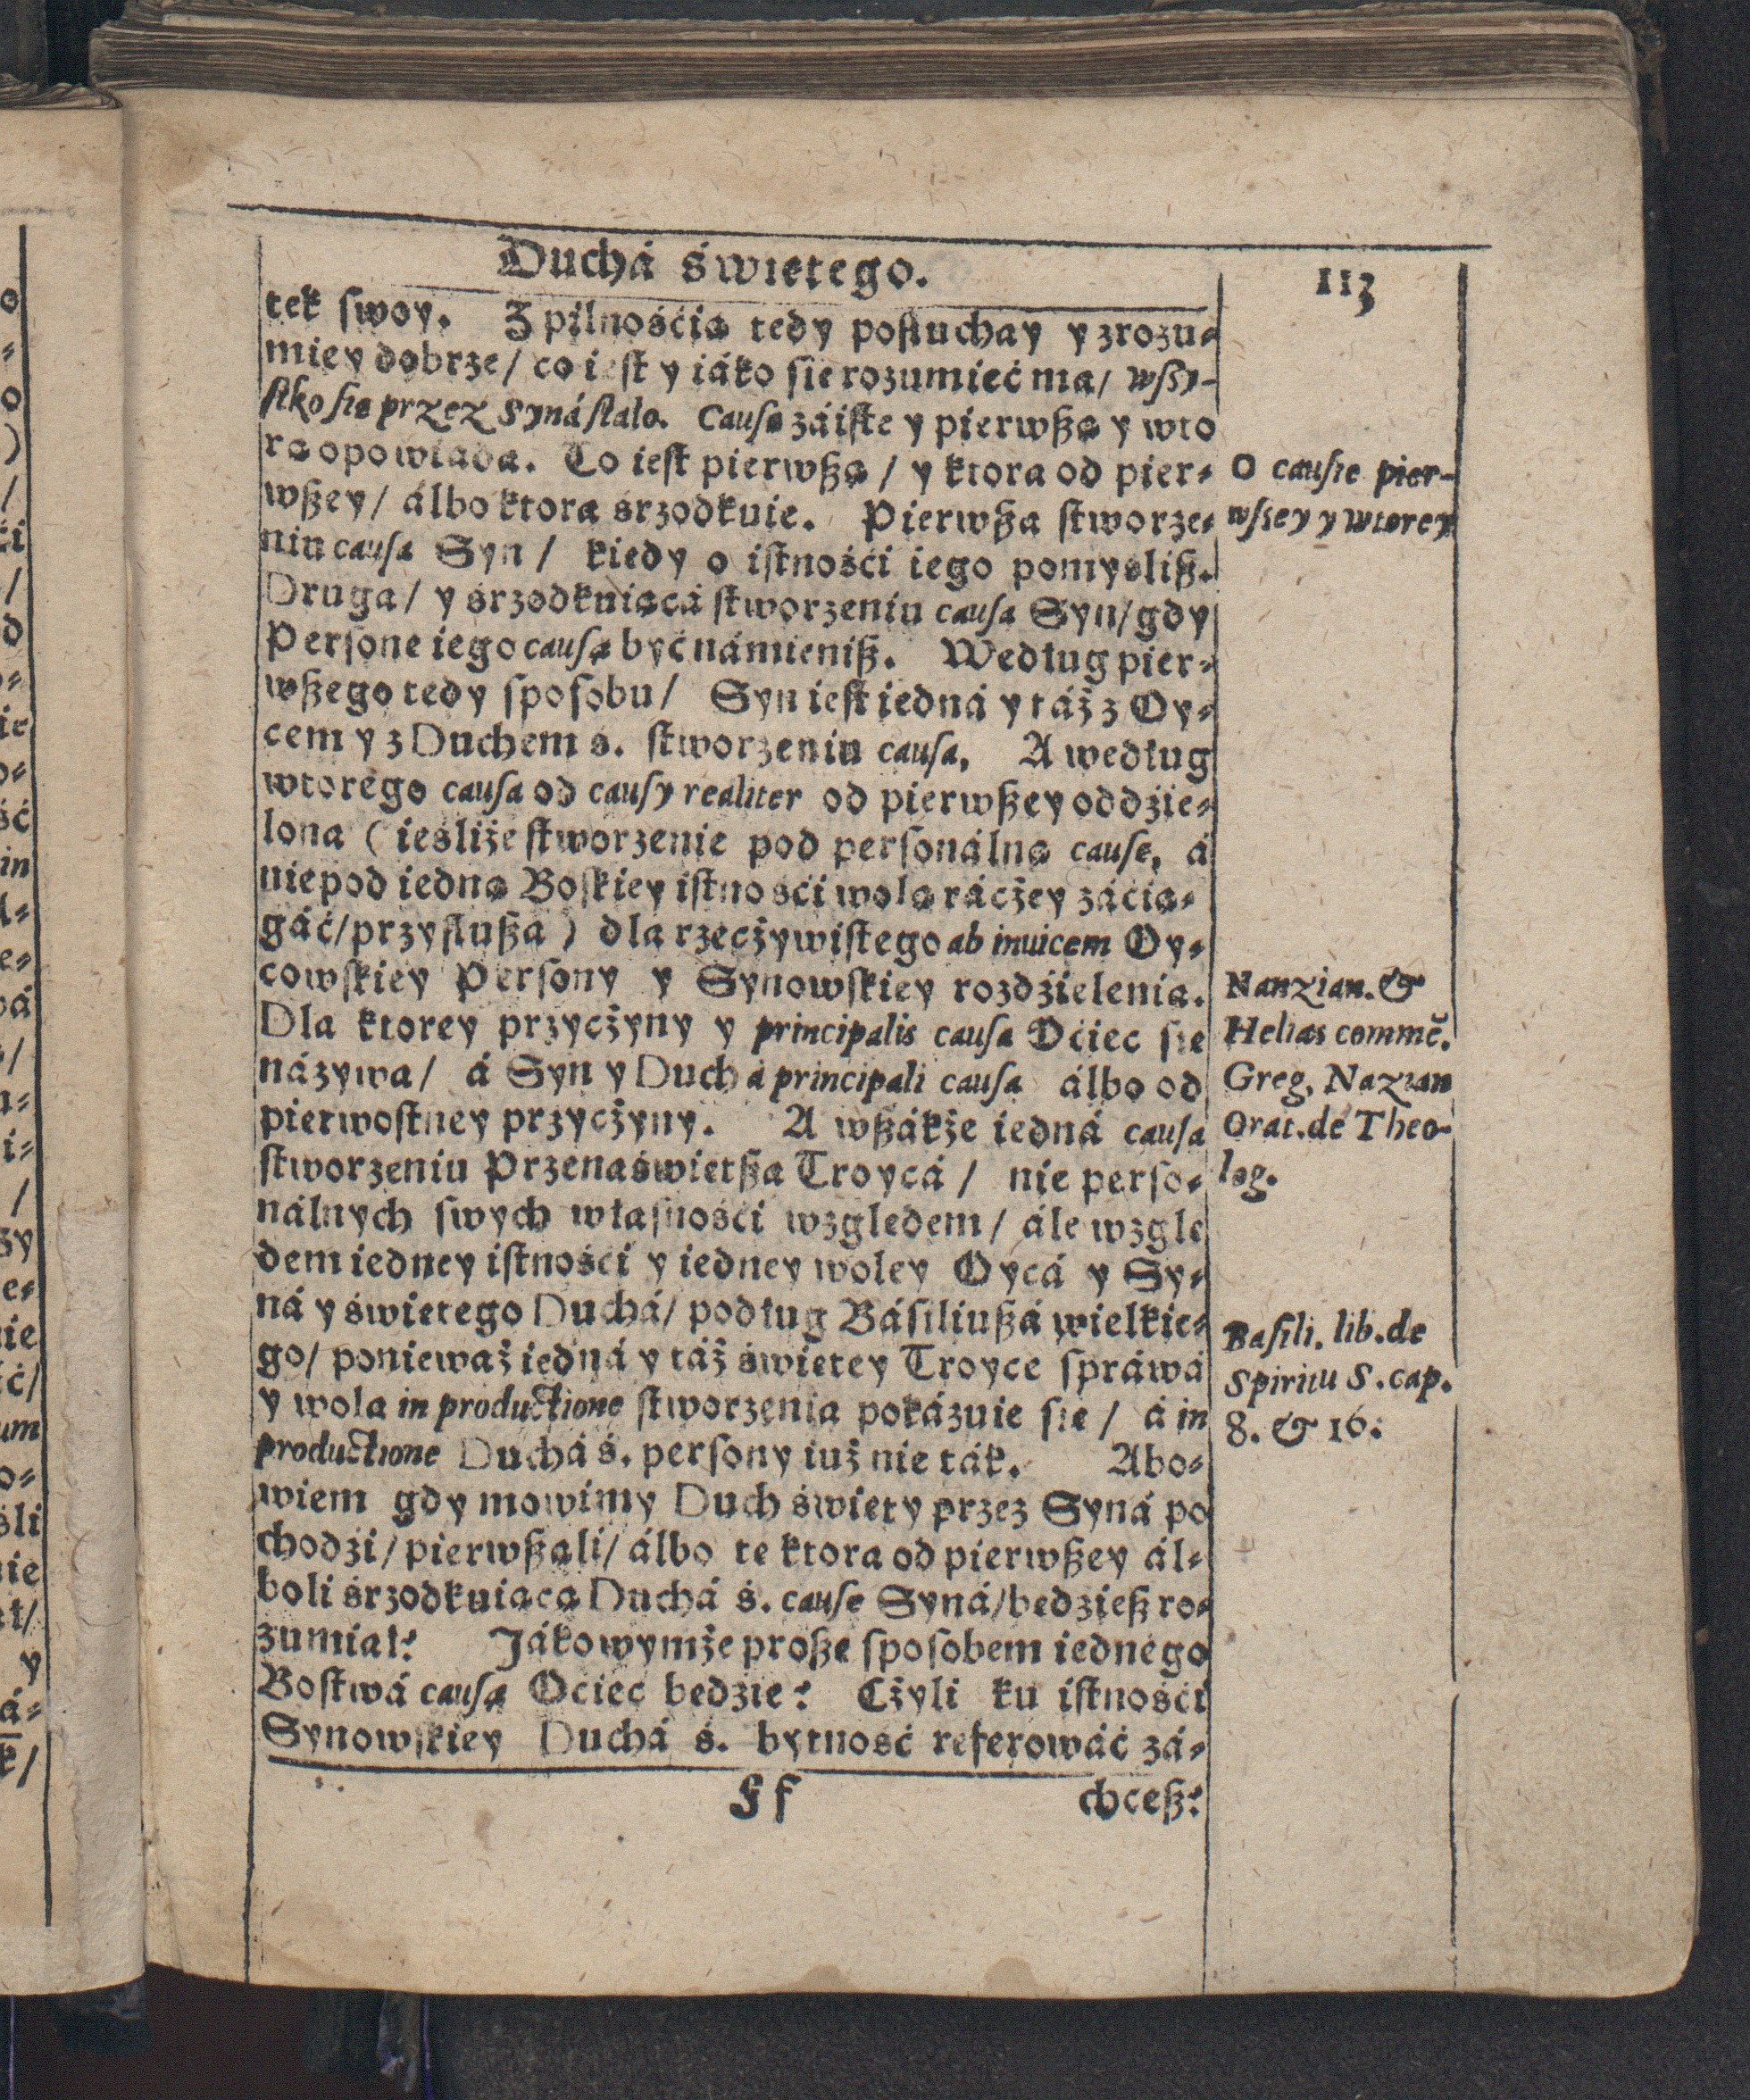 Duchá świetego.
113
tek ſwoy. Z pilnośćią tedy poſłuchay y zrozu⸗
miey dobrze/ co ieſt y iáko ſie rozumieć ma/ wſſy-
ſtko ſię przez Syná ſtalo. Cauſę záiſte y pierwßą y wto
rą opowiáda. To ieſt pierwßą/ y ktora od pier⸗
wßey/ álbo ktora srzodkuie. Pierwßa ſtworze⸗
niu cauſa Syn/ kiedy o iſtnośći iego pomyśliß.
Druga/ y srzodkuiącá ſtworzeniu cauſa Syn/ gdy
Perſone iego cauſą być námieniß. Według pier⸗
wßego tedy ſpoſobu/ Syn ieſt iedná y táż z Oy⸗
cem y z Duchem ś. ſtworzeniu cauſa, A według
wtorégo cauſa od cauſy realiter od pierwßey oddźie⸗
lona (ieśliże ſtworzenie pod perſonálną cauſe, á
nie pod iedną Boſkiey iſtnośći wolą ráczey záćią⸗
gáć/ przyſłußa) dla rzeczywiſtego ab inuicem Oy⸗
cowſkiey Perſony y Synowſkiey rozdźielenia.
Dla ktorey przyczyny y principalis cauſa Oćiec ſie
názywa/ á Syn y Duch á principali cauſa álbo od
pierwoſtney przyczyny. A wßákże iedná cauſa
ſtworzeniu Przenaświetßa Troycá/ nie perſo⸗
nálnych ſwych właſnośći wzgledem/ ále wzgle
dem iedney iſtnośći y iedney woley Oycá y Sy⸗
ná y świetego Duchá/ podług Báſiliußá wielkie⸗
go/ ponieważ iedná y táż świetey Troyce ſpráwá
y wola in productione ſtworzenia pokázuie ſie/ á in
productione Duchá ś. perſony iuż nie ták. Abo⸗
wiem gdy mowimy Duch świety przez Syná po
chodźi/ pierwßąli/ álbo te ktora od pierwßey ál⸗
boli srzodkuiącą Duchá ś. cauſe Syná/ bedźieß ro⸗
zumiał? Jákowymże proße ſpoſobem iednego
Boſtwá cauſą Oćiec bedzie? Czyli ku iſtnośći
Synowſkiey Duchá ś. bytność referowáć zá⸗
Ff
chceß?
O cauſie pier-
wſſey y wtorey
Nanzian. &
Helias commē.
Greg. Nazian
Orat. de Theo-
log.
Baſili. lib. de
Spiritu S. cap.
8. & 16.